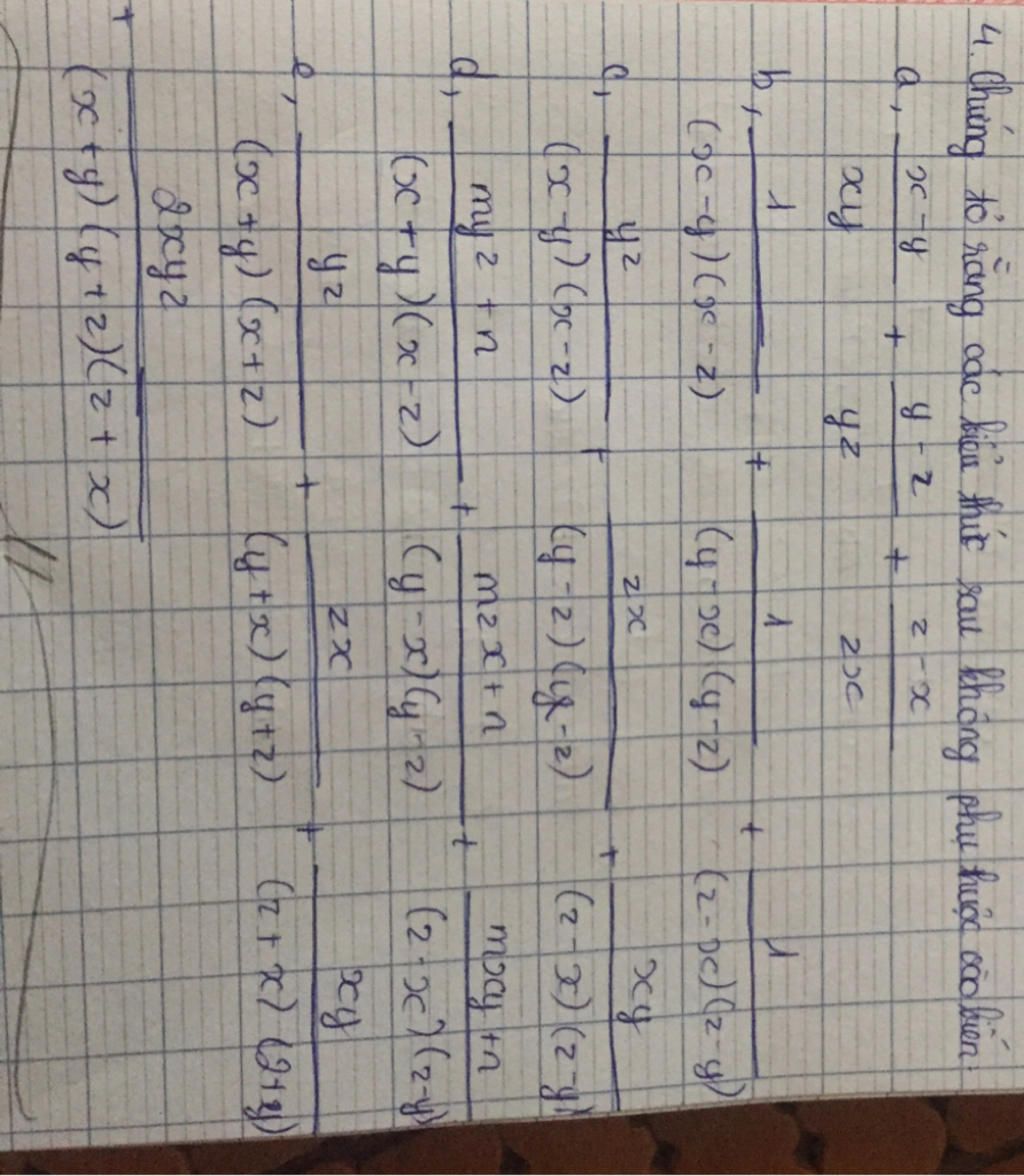 4. Chứng tỏ rằng các biểu thức sau không phụ thuộc vào biến:
a, (x-y)/(xy) + (y-z)/(yz) + (z-x)/(zx)
b, 1/((x-y)(x-z)) + 1/((y-x)(y-z)) + 1/((z-x)(z-y))
c, yz/((x-y)(x-z)) + zx/((y-z)(y-z)) + xy/((z-x)(z-y))
d, (myz+n)/((x+y)(x-z)) + (mzx+n)/((y-x)(y-z)) + (mxy+n)/((z-x)(z-y))
e, yz/((x+y)(x+z)) + zx/((y+x)(y+z)) + xy/((z+x)(z+y))
+ 2xyz/((x+y)(y+z)(z+x))